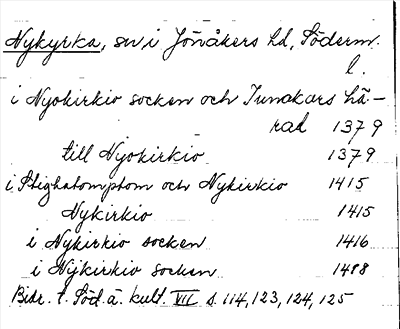 Nykyrka, sn i Jönåkers hd, Söderm.
l.
i Nyokirkio socken och Junakars hä-
rad 1379
till Nyokirkio 1379
i Stighatomptom och Nykirkio 1415
Nykirkio 1415
i Nykirkio socken 1416
i Nykirkio socken 1418
Bidr. t. Söd. ä. kult. VII s. 114, 123, 124, 125